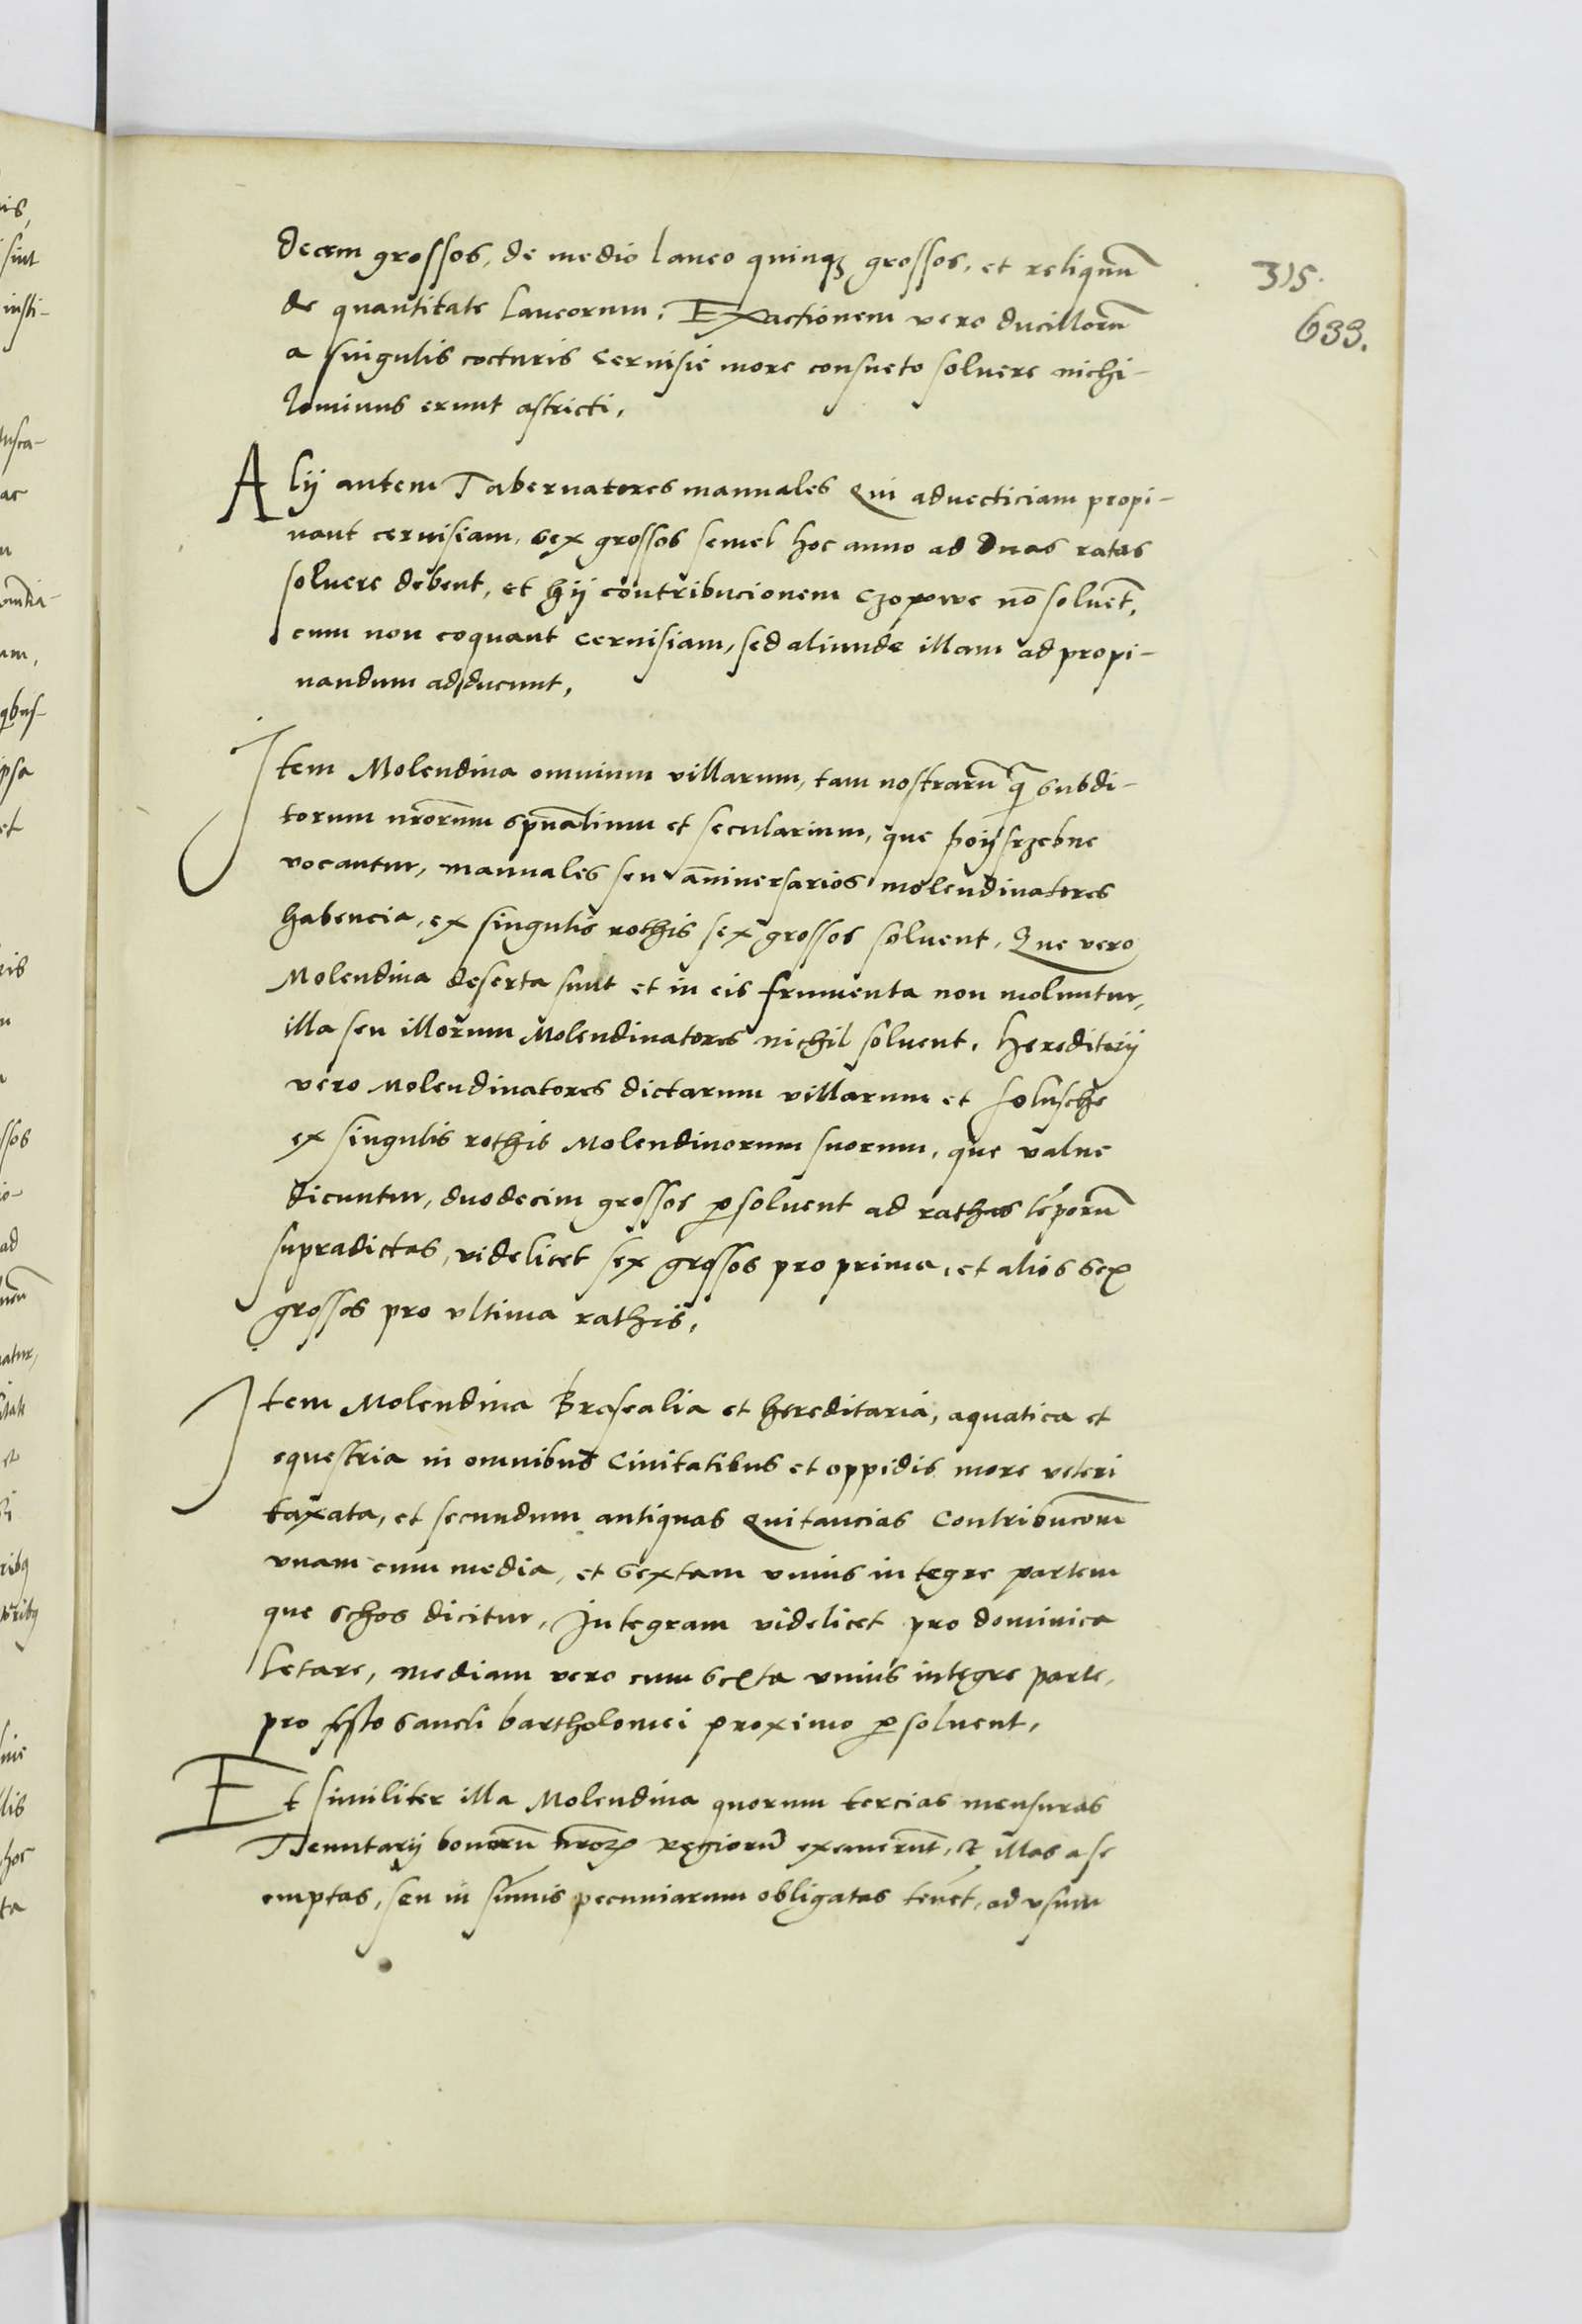 315.
633.
decem grossos, de medio laneo quinq₃ grossos, et reliquū
de quantitate laneorum. Exactionem vero ducillorū
a singulis cocturis cervisie more consueto solvere nichi-
lominus erunt astricti,
Alij autem Tabernatores manuales Qui advecticiam propi-
nant cervisiam, sex grossos semel hoc anno ad duas ratas
solvere debent, et hij contribucionem czopowe nō solvēt,
cum non coquant cervisiam, sed aliunde illam ad propi-
nandum adducunt,
Item Molendina omnium villarum, tam nostrarū q̄ subdi-
torum nr̄orum sp̄ualium et secularium, que
vocantur, manuales seu āniversarios molendinatores
habencia, ex singulis rothis sex grossos solvent, Que vero
Molendina deserta sunt et in eis frumenta non moluntur,
illa seu illorum Molendinatores nichil solvent. Hereditarij
vero Molendinatores dictarum villarum et solusche
ex singulis rothis Molendinorum suorum, que valne
dicuntur, duodecim grossos ꝑsolvent ad rathas tēporū
supradictas, videlicet sex grossos pro prima, et alios sex
grossos pro ultima rathis,
Item Molendina Brasealia et hereditaria, aquatica et
equestria in omnibus Civitatibus et oppidis more veteri
taxata, et secundum antiquas Quitancias Contribucōem
unam cum media, et sextam unius integre partem
que schos dicitur, Integram videlicet pro dominica
letare, mediam vero cum sexta unius integre parte,
pro festo sancti bartholomei proximo ꝑsolvent,
Et similiter illa Molendina quorum tercias mensuras
Tenutarij bonorū nr̄oꝝ regiorū exemerūt, et illas a se
emptas, seu in sūmis pecuniarum obligatas tenēt, ad usum